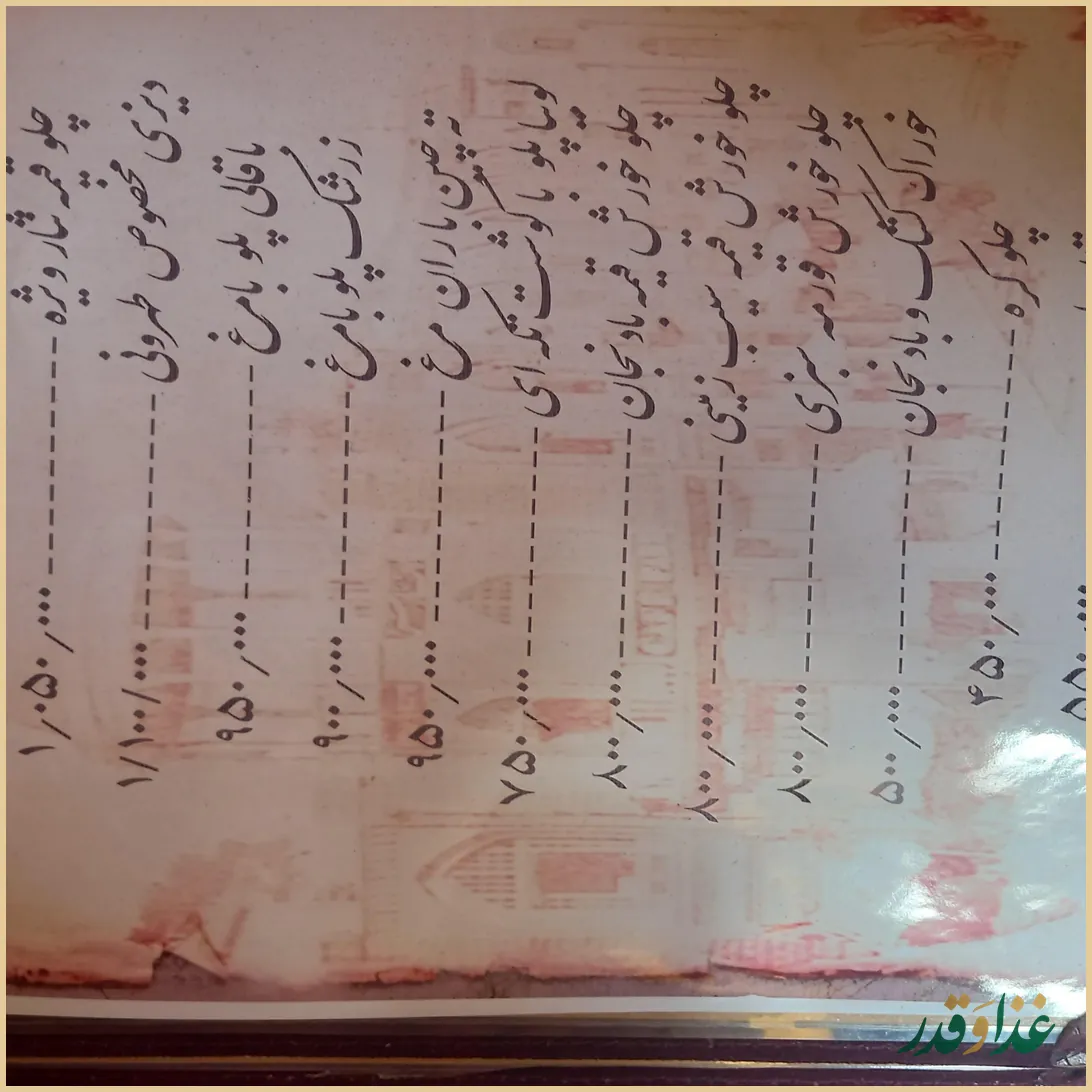 چلو قیمه نثار ویژه ---------------- ۱٫۰۵۰٫۰۰۰
دیزی مخصوص طهرونی ---------------- ۱/۱۰۰/۰۰۰
باقالی پلو با مرغ ---------------- ۹۵۰٫۰۰۰
زرشک پلو با مرغ ---------------- ۹۰۰٫۰۰۰
ته چین باران مرغ ---------------- ۹۵۰٫۰۰۰
لوبیا پلو با گوشت تکه ای ---------------- ۷۵۰٫۰۰۰
چلو خورش قیمه بادنجان ---------------- ۸۰۰٫۰۰۰
چلو خورش قیمه سیب زمینی ---------------- ۸۰۰٫۰۰۰
چلو خورش قورمه سبزی ---------------- ۸۰۰٫۰۰۰
خوراک کشک و بادنجان ---------------- ۵۰۰٫۰۰۰
چلو کره ---------------- ۴۵۰٫۰۰۰
غذا و قدر